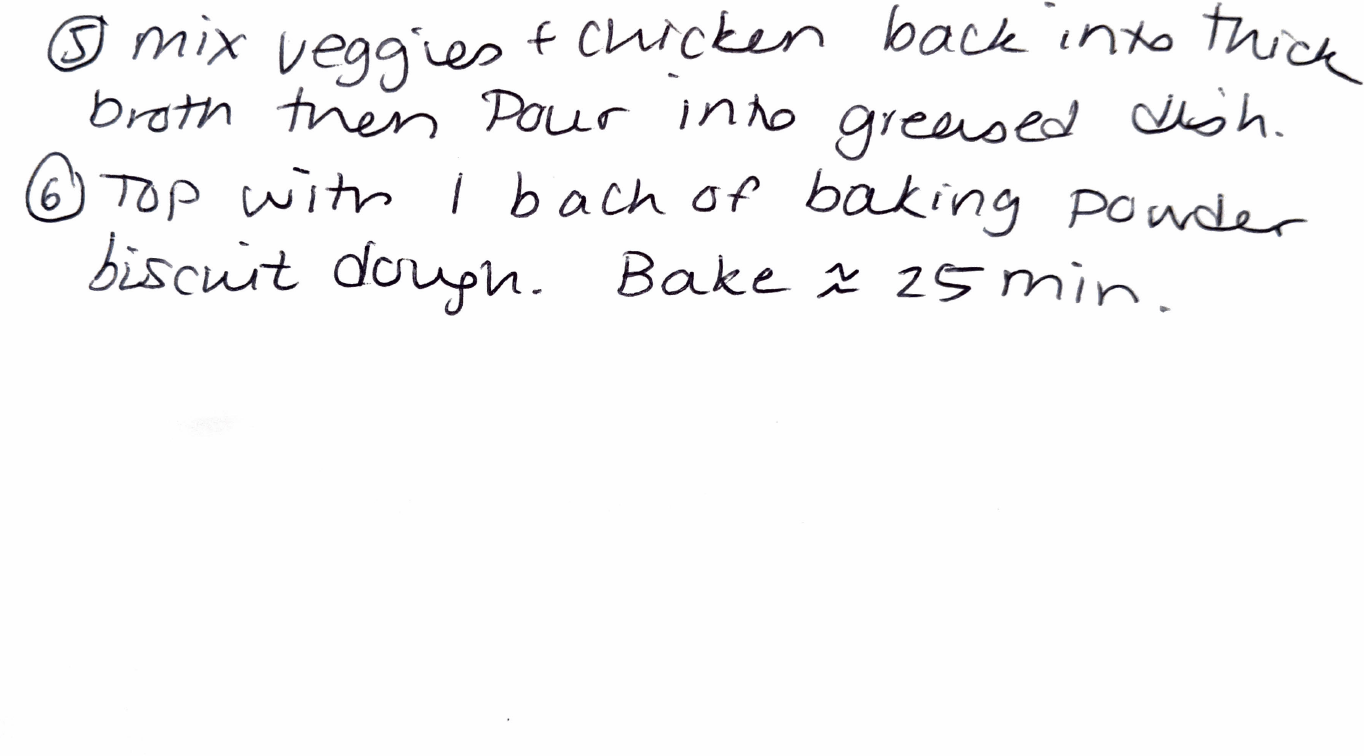 ⑤ mix veggies + chicken back into thick
broth then Pour into greased dish.
⑥ Top with 1 bach of baking powder
biscuit dough. Bake ≈ 25 min.